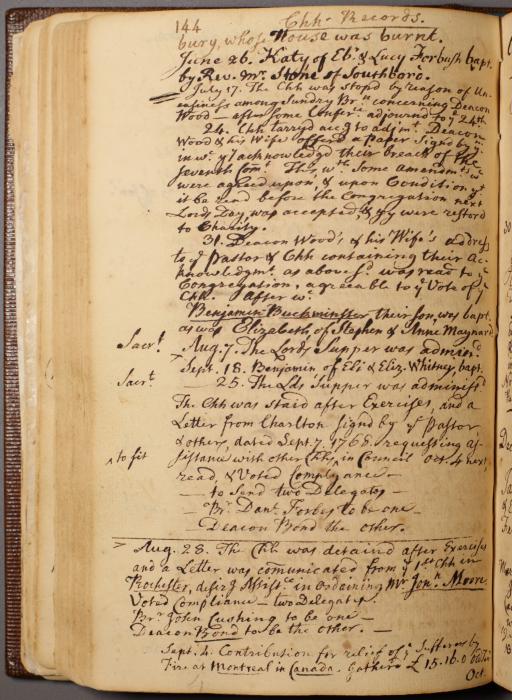 144 Chh Records.
bury, whose House was burnt.
June 26. Katy of Eb.r & Lucy Forbush bapt.
by Rev. Mr. Stone of Southboro.
July 17. The Chh was stopd by reason of Un-
easiness among Sundry Brn concerning Deacon
Wood — after some Confer.ce adjournd to ye 24th
24. Chh tarryd accg to adjmt. Deacon
Wood & his Wife offerd a paper Signd by 'm
in wc yy acknowledgd their breach of the
Seventh Com.t This, wth Some amendmts wc
were agreed upon, & upon Condition yt
it be read before the Congregation next
Lords Day, was accepted, & yy were restord
to Charity.
31. Deacon Wood's, & his Wife's address
to ye Pastor & Chh containing their Ac-
knowledgmt. as above sd was read to ye
Congregation, agreeable to ye Vote of ye
Chh. After wc
Benjamin Buckminster their son, was bapt.
as was Elizabeth of Stephen & Anne Maynard
Sacrt. Aug. 7. The Lords Supper was admin.d
Sept. 18. Benjamin of Eli & Eliz. Whitney bapt.
Sacrt. — 25. The Lds Supper was administd
The Chh was staid after Exercises, and a
Letter from Charlton Signd by ye Pastor
& others, dated Sept. 7. 1768. requesting as-
^ to sit sistance with other Chhs ^ in Council Oct. 4 next
read, & Voted Complyance —
— to Send two Delegates —
— Br. Danl. Forbes to be one —
Deacon Bond the other.
Aug. 28. The Chh was detaind after Exercises
and a Letter was comunicated from ye 1st Chh in
Rochester, desirg Assistce in Ordaining Mr Jonn. Moore
Voted Compliance — two Delegates
Brr John Cushing to be one —
Deacon Bond to be the other. —
Sept. 4. Contribution for relief of ye Sufferers by
Fire at Montreal in Canada. Gatherd £ 15. 16. 0
Oct.